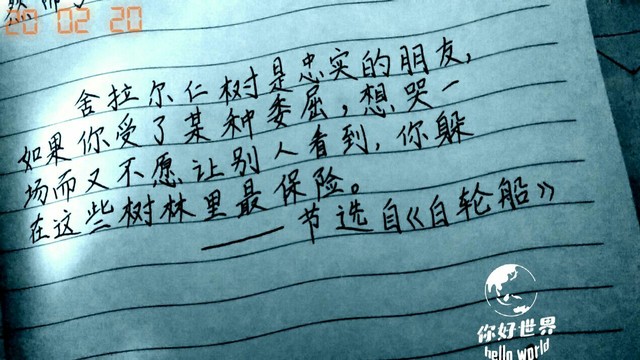 20 02 20
舍拉尔仁树是忠实的朋友,
如果你受了某种委屈,想哭一
场而又不愿让别人看到,你躲
在这些树林里最保险。
——节选自《白轮船》
你好世界
hello world